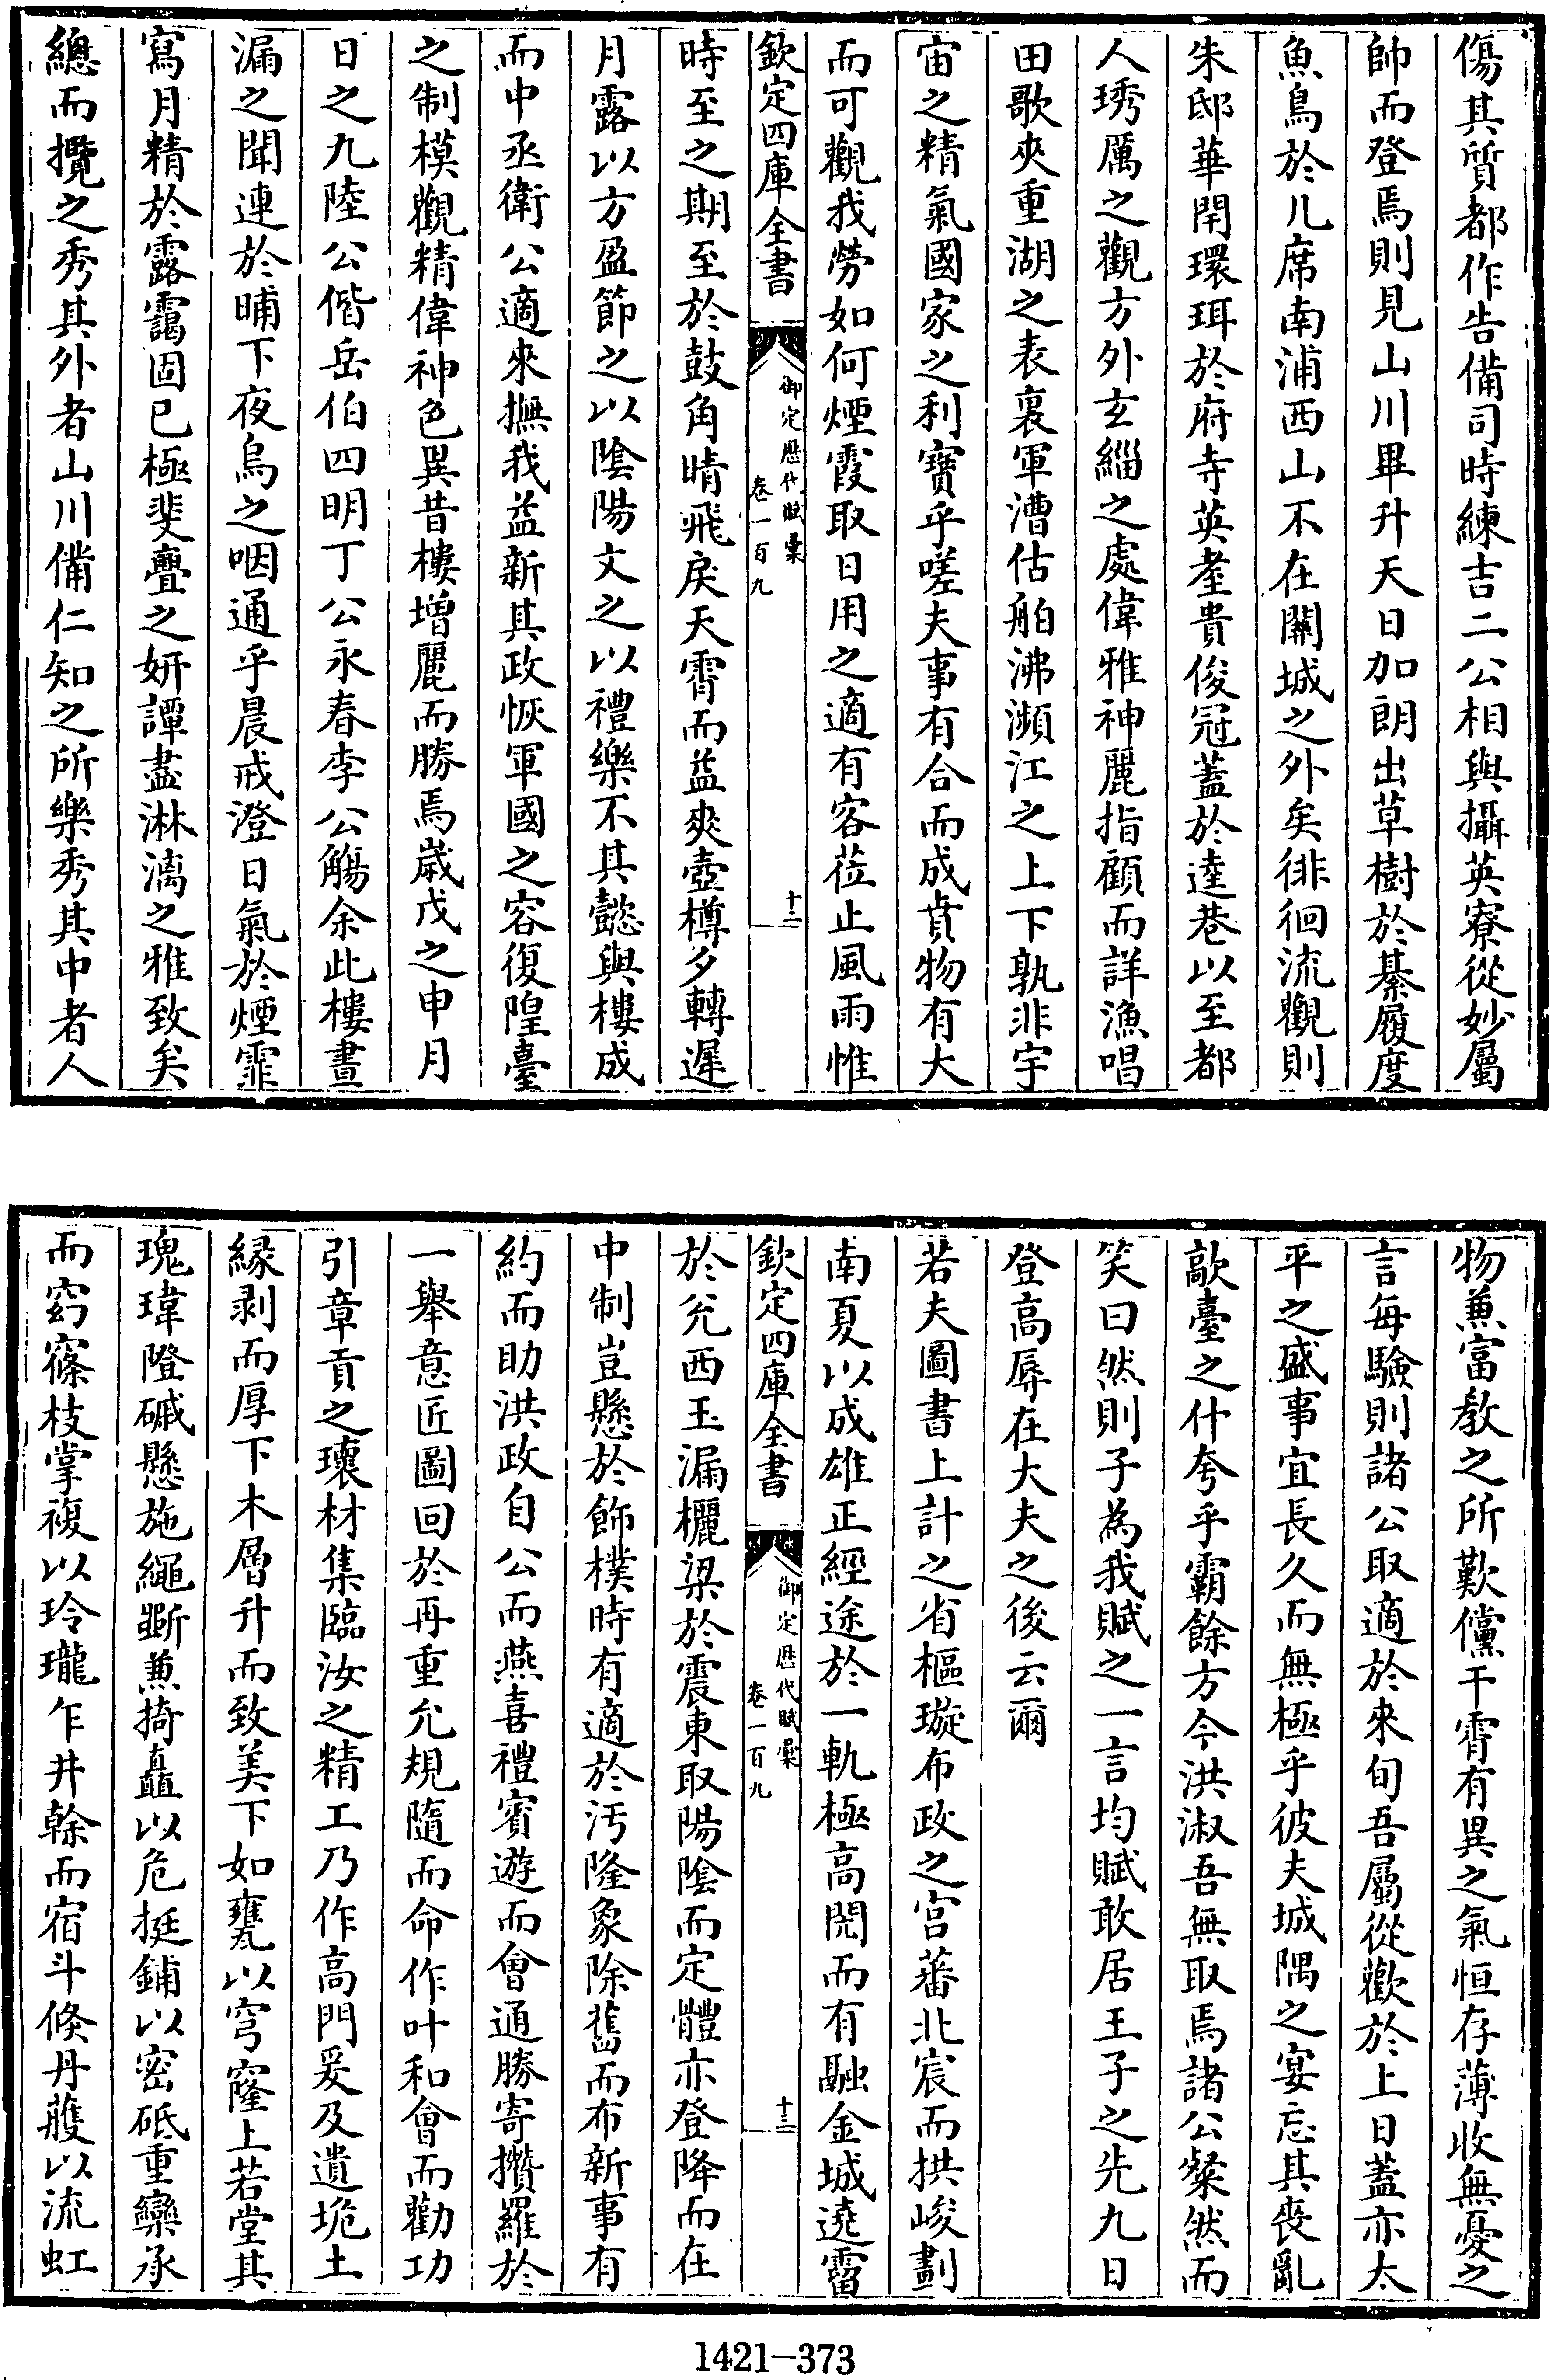 傷其質都作告備司時練吉二公相與攝英寮從妙屬
帥而登焉則見山川畢升天日加朗出草樹於綦履度
魚鳥於几席南浦西山不在闗城之外矣徘徊流觀則
朱邸華閈環珥於府寺英耋貴俊冠蓋於逵巷以至都
人琇厲之觀方外玄緇之處偉雅神麗指顧而詳漁唱
田歌夾重湖之表裏軍漕估舶沸瀕江之上下孰非宇
宙之精氣國家之利寶乎嗟夫事有合而成賁物有大
而可觀我勞如何煙霞取日用之適有客莅止風雨惟
欽定四庫全書
御定歴代賦彙
卷一百九
十二
時至之期至於鼓角晴飛戾天霄而益爽壺樽夕轉遲
月露以方盈節之以陰陽文之以禮樂不其懿與樓成
而中丞衛公適來撫我益新其政恢軍國之容復隍臺
之制模觀精偉神色異昔樓增麗而勝焉歲戊之申月
日之九陸公偕岳伯四明丁公永春李公觴余此樓晝
漏之聞連於晡下夜烏之咽通乎晨戒澄日氣於煙霏
寫月精於露靄固已極斐亹之妍譚盡淋漓之雅致矣
總而攬之秀其外者山川備仁知之所樂秀其中者人
物兼富教之所歎儻干霄有異之氣恒存薄收無憂之
言每驗則諸公取適於來旬吾屬從歡於上日蓋亦太
平之盛事宜長久而無極乎彼夫城隅之宴忘其喪亂
歊臺之什夸乎霸餘方今洪淑吾無取焉諸公粲然而
笑曰然則子為我賦之一言均賦敢居王子之先九日
登高辱在大夫之後云爾
若夫圖書上計之省樞璇布政之宫蕃北宸而拱峻劃
南夏以成雄正經途於一軌極高閌而有融金城遶霤
欽定四庫全書
御定歴代賦彙
卷一百九
十三
於兊西玉漏欐梁於震東取陽陰而定體亦登降而在
中制豈懸於飾樸時有適於汚隆象除舊而布新事有
約而助洪政自公而燕喜禮賓遊而會通勝寄攢羅於
一舉意匠圖回於再重允規隨而命作叶和會而勸功
引章貢之瓌材集臨汝之精工乃作高門爰及遺垝土
縁剥而厚下木層升而致美下如甕以穹窿上若堂其
瑰瑋隥磩懸施繩斲兼掎矗以危挺鋪以密砥重欒承
而窈窱枝掌複以玲瓏乍井幹而宿斗倐丹雘以流虹
1421-373